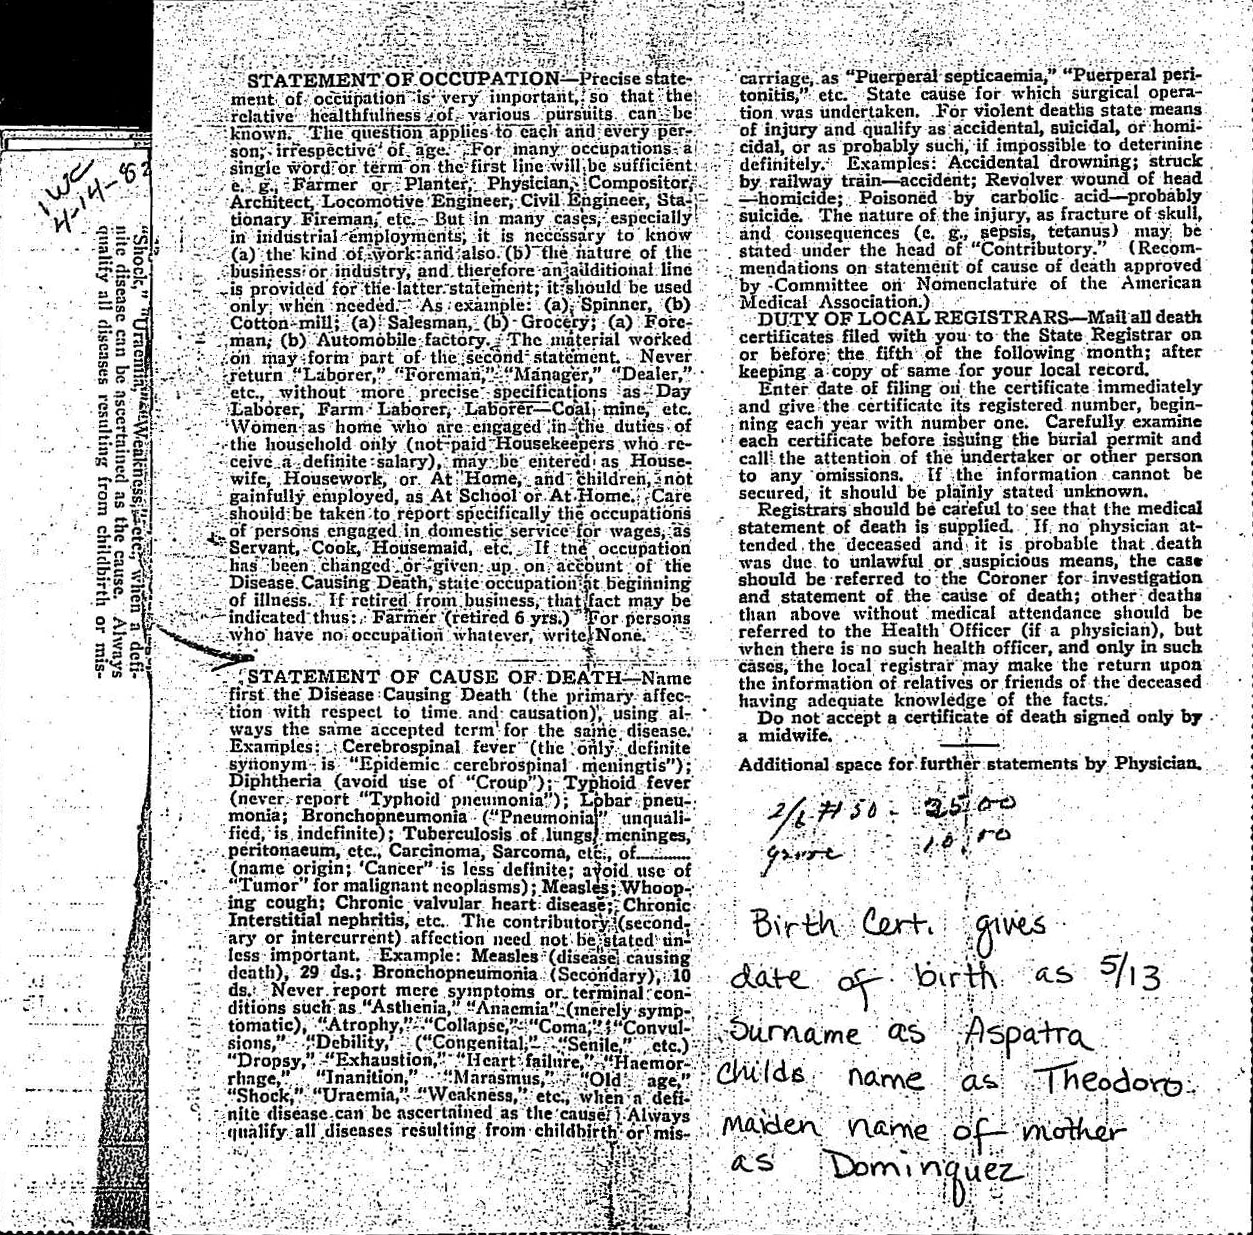 1WC
4-14-82
"Shock," "Uraemia," "Weakness," etc., when a defi-
nite disease can be ascertained as the cause. Always
qualify all diseases resulting from childbirth or mis-
STATEMENT OF OCCUPATION—Precise state-
ment of occupation is very important, so that the
relative healthfulness of various pursuits can be
known. The question applies to each and every per-
son, irrespective of age. For many occupations a
single word or term on the first line will be sufficient
e. g., Farmer or Planter, Physician, Compositor,
Architect, Locomotive Engineer, Civil Engineer, Sta-
tionary Fireman, etc. But in many cases, especially
in industrial employments, it is necessary to know
(a) the kind of work and also (b) the nature of the
business or industry, and therefore an additional line
is provided for the latter statement; it should be used
only when needed. As example: (a) Spinner, (b)
Cotton mill; (a) Salesman, (b) Grocery; (a) Fore-
man, (b) Automobile factory. The material worked
on may form part of the second statement. Never
return "Laborer," "Foreman," "Manager," "Dealer,"
etc., without more precise specifications as Day
Laborer, Farm Laborer, Laborer—Coal mine, etc.
Women as home who are engaged in the duties of
the household only (not paid Housekeepers who re-
ceive a definite salary), may be entered as House-
wife, Housework, or At Home, and children, not
gainfully employed, as At School or At Home. Care
should be taken to report specifically the occupations
of persons engaged in domestic service for wages, as
Servant, Cook, Housemaid, etc. If the occupation
has been changed or given up on account of the
Disease Causing Death, state occupation at beginning
of illness. If retired from business, that fact may be
indicated thus: Farmer (retired 6 yrs.) For persons
who have no occupation whatever, write None.
STATEMENT OF CAUSE OF DEATH—Name
first the Disease Causing Death (the primary affec-
tion with respect to time and causation), using al-
ways the same accepted term for the same disease.
Examples: Cerebrospinal fever (the only definite
synonym is "Epidemic cerebrospinal meningtis");
Diphtheria (avoid use of "Croup"); Typhoid fever
(never report "Typhoid pneumonia"); Lobar pneu-
monia; Bronchopneumonia ("Pneumonia" unquali-
fied, is indefinite); Tuberculosis of lungs, meninges,
peritonaeum, etc., Carcinoma, Sarcoma, etc., of..........
(name origin; "Cancer" is less definite; avoid use of
"Tumor" for malignant neoplasms); Measles; Whoop-
ing cough; Chronic valvular heart disease; Chronic
Interstitial nephritis, etc. The contributory (second-
ary or intercurrent) affection need not be stated un-
less important. Example: Measles (disease causing
death), 29 ds.; Bronchopneumonia (Secondary), 10
ds. Never report mere symptoms or terminal con-
ditions such as "Asthenia," "Anaemia" (merely symp-
tomatic), "Atrophy," "Collapse," "Coma," "Convul-
sions," "Debility," ("Congenital," "Senile," etc.)
"Dropsy," "Exhaustion," "Heart failure," "Haemor-
rhage," "Inanition," "Marasmus," "Old age,"
"Shock," "Uraemia," "Weakness," etc., when a defi-
nite disease can be ascertained as the cause. Always
qualify all diseases resulting from childbirth or mis-
carriage, as "Puerperal septicaemia," "Puerperal peri-
tonitis," etc. State cause for which surgical opera-
tion was undertaken. For violent deaths state means
of injury and qualify as accidental, suicidal, or homi-
cidal, or as probably such, if impossible to determine
definitely. Examples: Accidental drowning; struck
by railway train—accident; Revolver wound of head
—homicide; Poisoned by carbolic acid—probably
suicide. The nature of the injury, as fracture of skull,
and consequences (e. g., sepsis, tetanus) may be
stated under the head of "Contributory." (Recom-
mendations on statement of cause of death approved
by Committee on Nomenclature of the American
Medical Association.)
DUTY OF LOCAL REGISTRARS—Mail all death
certificates filed with you to the State Registrar on
or before the fifth of the following month; after
keeping a copy of same for your local record.
Enter date of filing on the certificate immediately
and give the certificate its registered number, begin-
ning each year with number one. Carefully examine
each certificate before issuing the burial permit and
call the attention of the undertaker or other person
to any omissions. If the information cannot be
secured, it should be plainly stated unknown.
Registrars should be careful to see that the medical
statement of death is supplied. If no physician at-
tended the deceased and it is probable that death
was due to unlawful or suspicious means, the case
should be referred to the Coroner for investigation
and statement of the cause of death; other deaths
than above without medical attendance should be
referred to the Health Officer (if a physician), but
when there is no such health officer, and only in such
cases, the local registrar may make the return upon
the information of relatives or friends of the deceased
having adequate knowledge of the facts.
Do not accept a certificate of death signed only by
a midwife.
Additional space for further statements by Physician.
2/6 #50 - 25.00
grave 10.00
Birth Cert. gives
date of birth as 5/13
Surname as Aspatra
childs name as Theodoro
maiden name of mother
as Dominquez